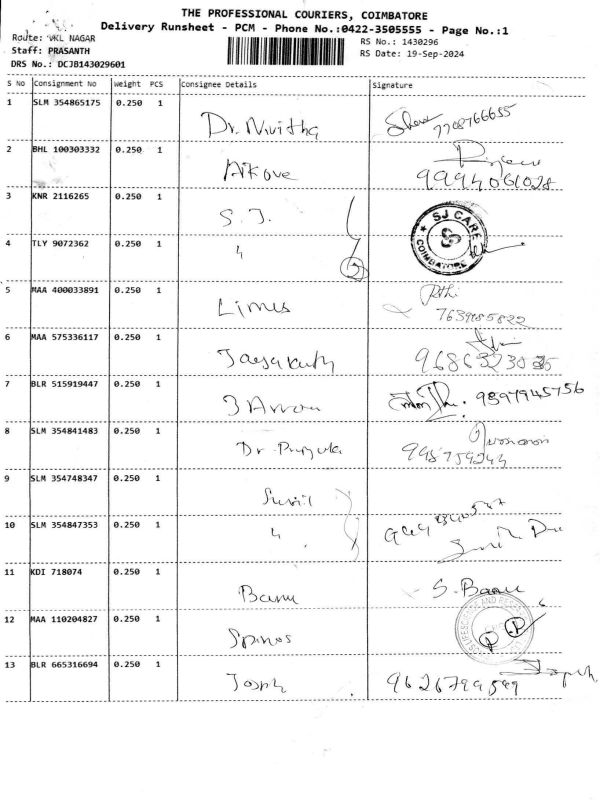 THE PROFESSIONAL COURIERS, COIMBATORE
Delivery Runsheet - PCM - Phone No.:0422-3505555 - Page No.:1
Route: VKL NAGAR
RS No.: 1430296
Staff: PRASANTH
RS Date: 19-Sep-2024
DRS No.: DCJB143029601
S No Consignment No Weight PCS Consignee Details Signature
1 SLM 354865175 0.250 1 Dr. Nivitha 7708766655
2 BHL 100303332 0.250 1 9994061028
3 KNR 2116265 0.250 1 S.J. SJ CARE
4 TLY 9072362 0.250 1 4 2 COIMBATORE
5 MAA 400033891 0.250 1 Limes 7639185822
6 MAA 575336117 0.250 1
7 BLR 515919447 0.250 1 3 Arrow 9597945756
8 SLM 354841483 0.250 1 Dr
9 SLM 354748347 0.250 1 Sunil
10 SLM 354847353 0.250 1 4
11 KDI 718074 0.250 1 Banu S. Banu
12 MAA 110204827 0.250 1 Spinos
13 BLR 665316694 0.250 1 Josph 9626799599